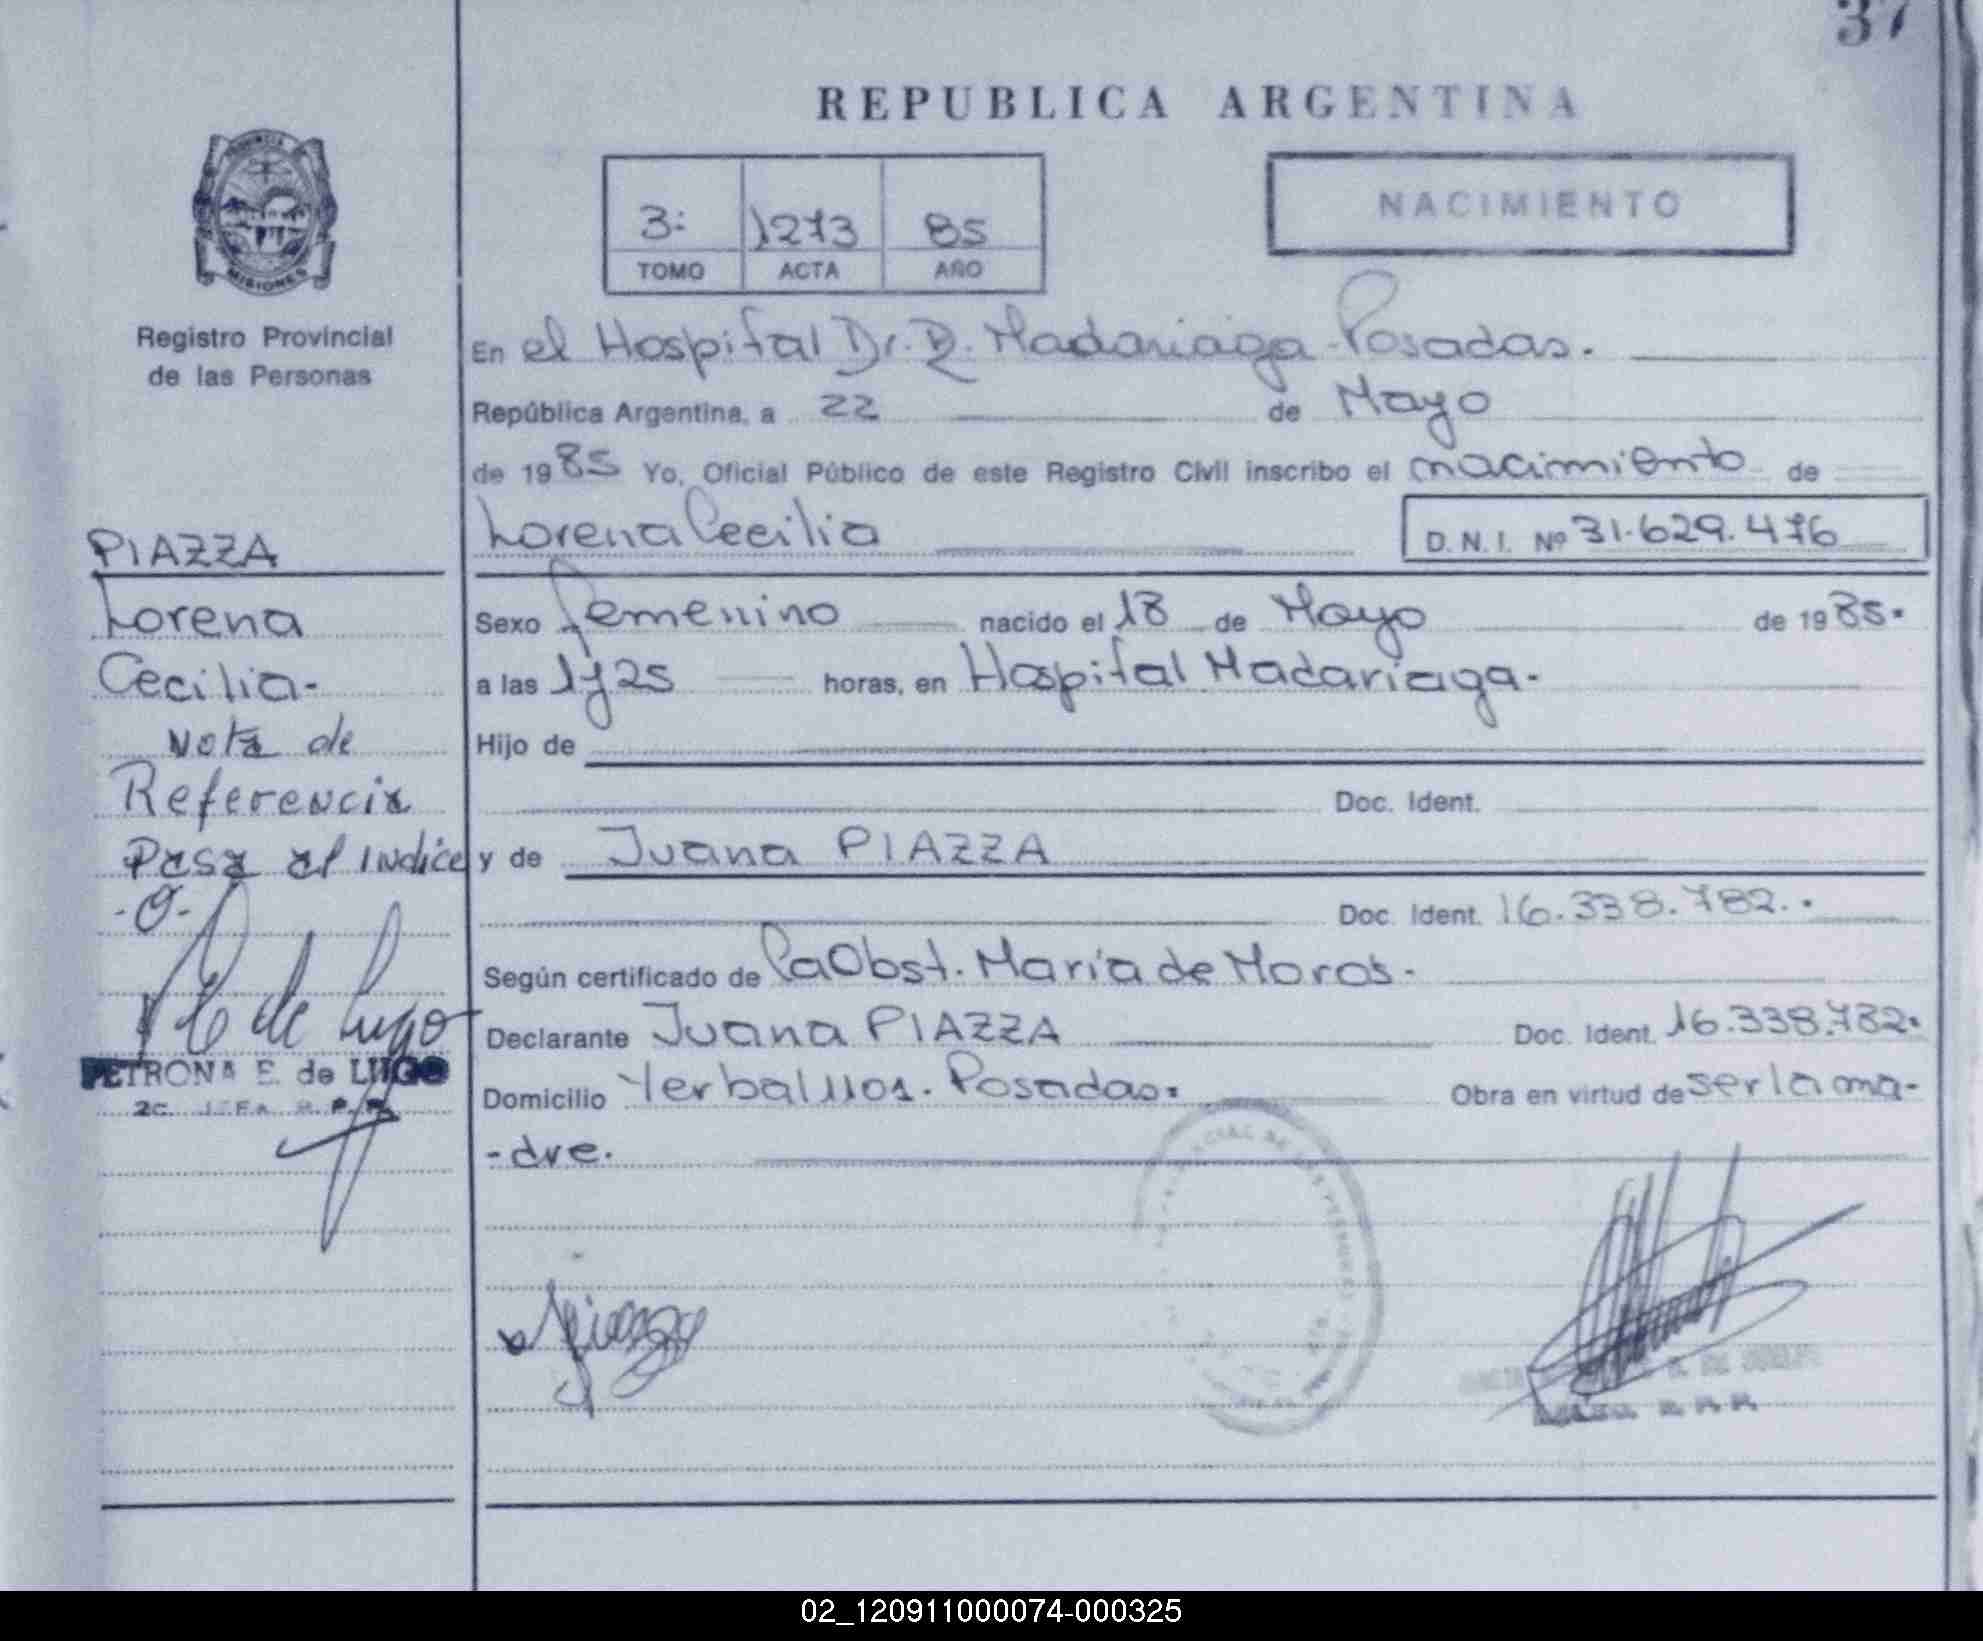 37
REPUBLICA ARGENTINA
3: 1273 85
TOMO ACTA AÑO
NACIMIENTO
PROVINCIA
MISIONES
Registro Provincial
de las Personas
PIAZZA
Lorena
Cecilia-
Nota de
Referencia
Pasa al indice
-O-
E de Lugo
PETRONA E. de LUGO
En el Hospital Dr. R. Madariaga-Posadas.
República Argentina, a 22 de Mayo
de 1985 Yo, Oficial Público de este Registro Civil inscribo el nacimiento de
Lorena Cecilia D. N. I. Nº 31.629.476
Sexo femenino nacido el 18 de Mayo de 1985.
a las 1y25 horas, en Hospital Madariaga.
Hijo de
Doc. Ident.
y de Juana PIAZZA
Doc. Ident. 16.338.782.
Según certificado de la Obst. María de Moros.
Declarante Juana PIAZZA Doc. Ident. 16.338.782.
Domicilio Posadas. Obra en virtud de ser la ma-
-dre.
02_120911000074-000325